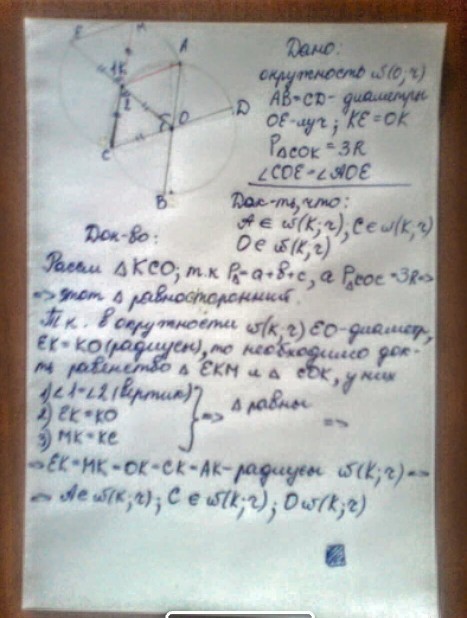 E M
A
1 K
2
O
D
C
B
Дано:
окружность ω(O,r)
AB=CD- диаметры
OE-луч; KE=OK
P△COK = 3R
∠COE=∠AOE
Док-ть, что:
A ∈ ω(K;r), C ∈ ω(K;r)
O ∈ ω(K;r)
Док-во:
Рассм △KCO; т.к P△=a+b+c, а P△COC=3R=>
=> этот △ равносторонний.
Т.к. в окружности ω(k;r) EO-диаметр,
EK=KO(радиусы), то необходимо док-
ть равенство △ EKM и △ COK, у них
1) ∠1=∠2 (вертик)
2) EK=KO => △ равны
3) MK=KC =>
=> EK=MK=OK=CK=AK- радиусы ω(K;r)=>
=> A∈ω(K;r); C∈ω(K;r); Oω(K;r)